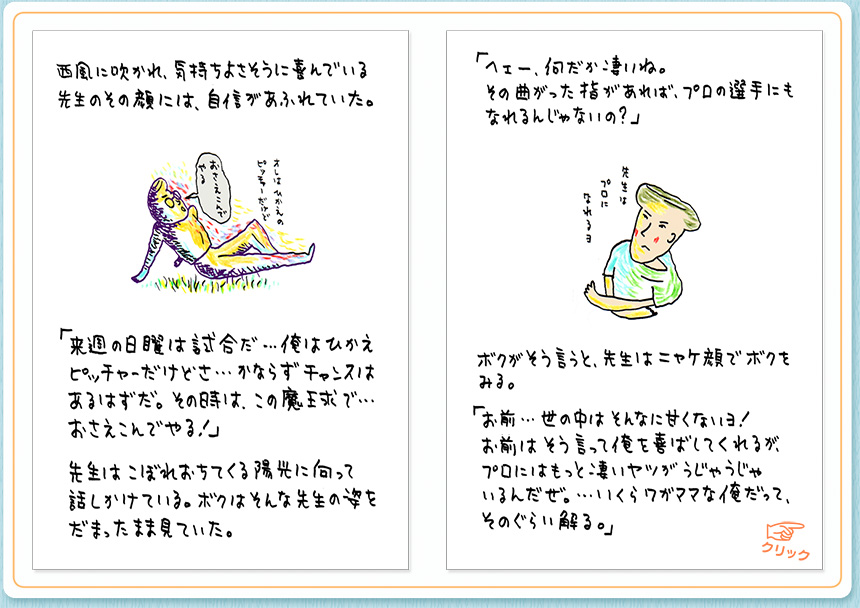 西風に吹かれ、気持ちよさそうに喜んでいる
先生のその顔には、自信があふれていた。
おさえこんで
やる
オレは ひかえの
ピッチャーだけど
「来週の日曜は試合だ…俺はひかえ
ピッチャーだけどさ…かならずチャンスは
あるはずだ。その時は、この魔王球で…
おさえこんでやる！」
先生はこぼれおちてくる陽光に向って
話しかけている。ボクはそんな先生の姿を
だまったまま見ていた。
「ヘェー、何だか凄いね。
その曲がった指があれば、プロの選手にも
なれるんじゃないの？」
先生は
プロに
なれるヨ
ボクがそう言うと、先生はニヤケ顔でボクを
みる。
「お前…世の中はそんなに甘くないヨ！
お前はそう言って俺を喜ばしてくれるが、
プロにはもっと凄いヤツがうじゃうじゃ
いるんだぜ。…いくらワガママな俺だって、
そのぐらい解る。」
クリック